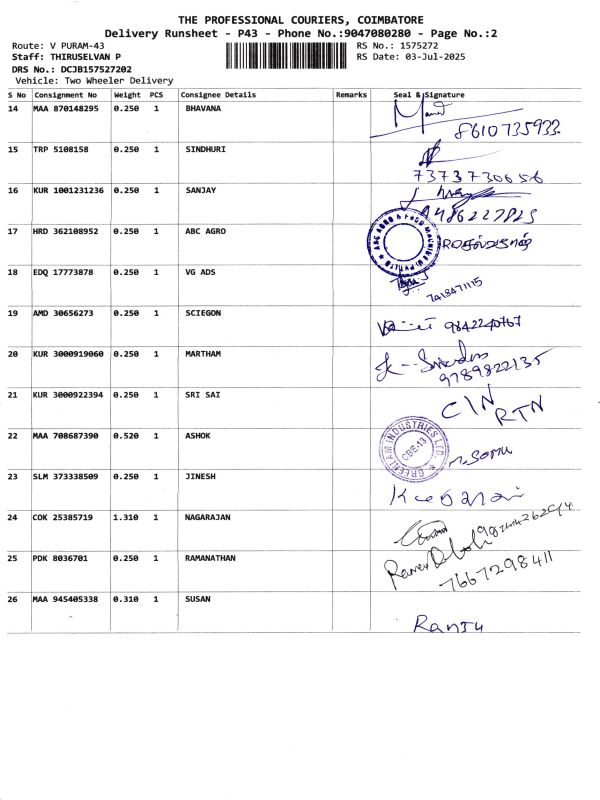 THE PROFESSIONAL COURIERS, COIMBATORE
Delivery Runsheet - P43 - Phone No.:9047080280 - Page No.:2
Route: V PURAM-43 RS No.: 1575272
Staff: THIRUSELVAN P RS Date: 03-Jul-2025
DRS No.: DCJB157527202
Vehicle: Two Wheeler Delivery
S No Consignment No Weight PCS Consignee Details Remarks Seal & Signature
14 MAA 870148295 0.250 1 BHAVANA
8610735933
15 TRP 5108158 0.250 1 SINDHURI
7373730656
16 KUR 1001231236 0.250 1 SANJAY
9486227825
17 HRD 362108952 0.250 1 ABC AGRO
ABC AGRO & FOOD MACHINE (I) PVT LTD
18 EDQ 17773878 0.250 1 VG ADS
7418471115
19 AMD 30656273 0.250 1 SCIEGON
9842240767
20 KUR 3000919060 0.250 1 MARTHAM
9789822135
21 KUR 3000922394 0.250 1 SRI SAI
C/N RTN
22 MAA 708687390 0.520 1 ASHOK
GREENLAM INDUSTRIES LTD. CBE-13
n. Somu
23 SLM 373338509 0.250 1 JINESH
24 COK 25385719 1.310 1 NAGARAJAN
25 PDK 8036701 0.250 1 RAMANATHAN
7667298411
26 MAA 945405338 0.310 1 SUSAN
Ranju